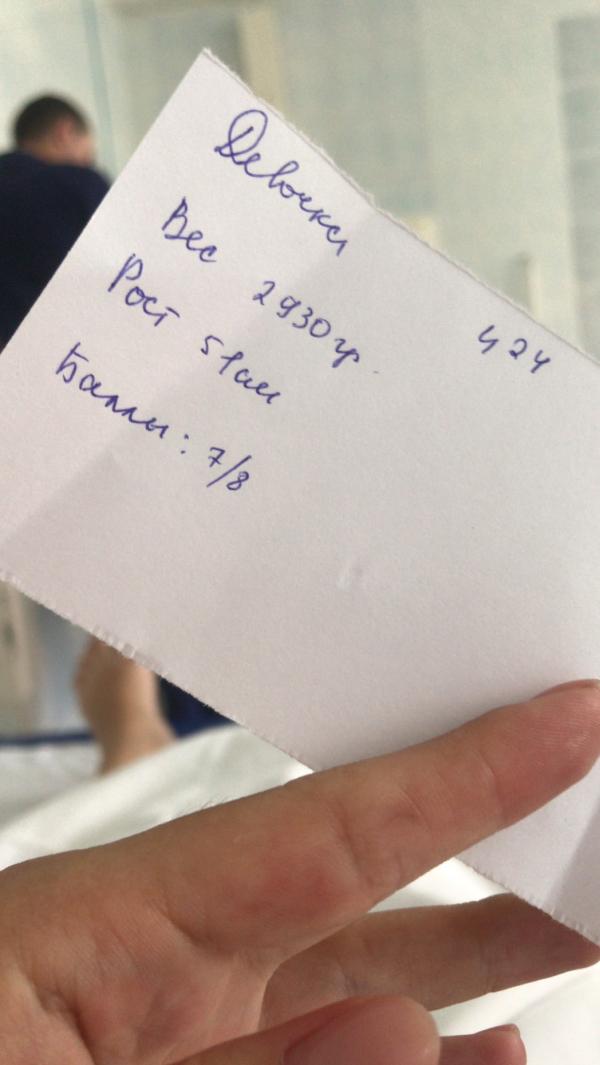 Девочка
Вес 2930гр.
Рост 51см
Баллы: 7/8
424